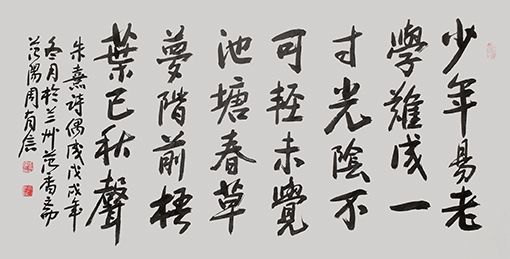 少年易老
學難成一
寸光陰不
可輕未覺
池塘春草
夢階前梧
葉已秋聲
朱熹詩偶成戊戌年
冬月於兰州范香斋
范陽周有信